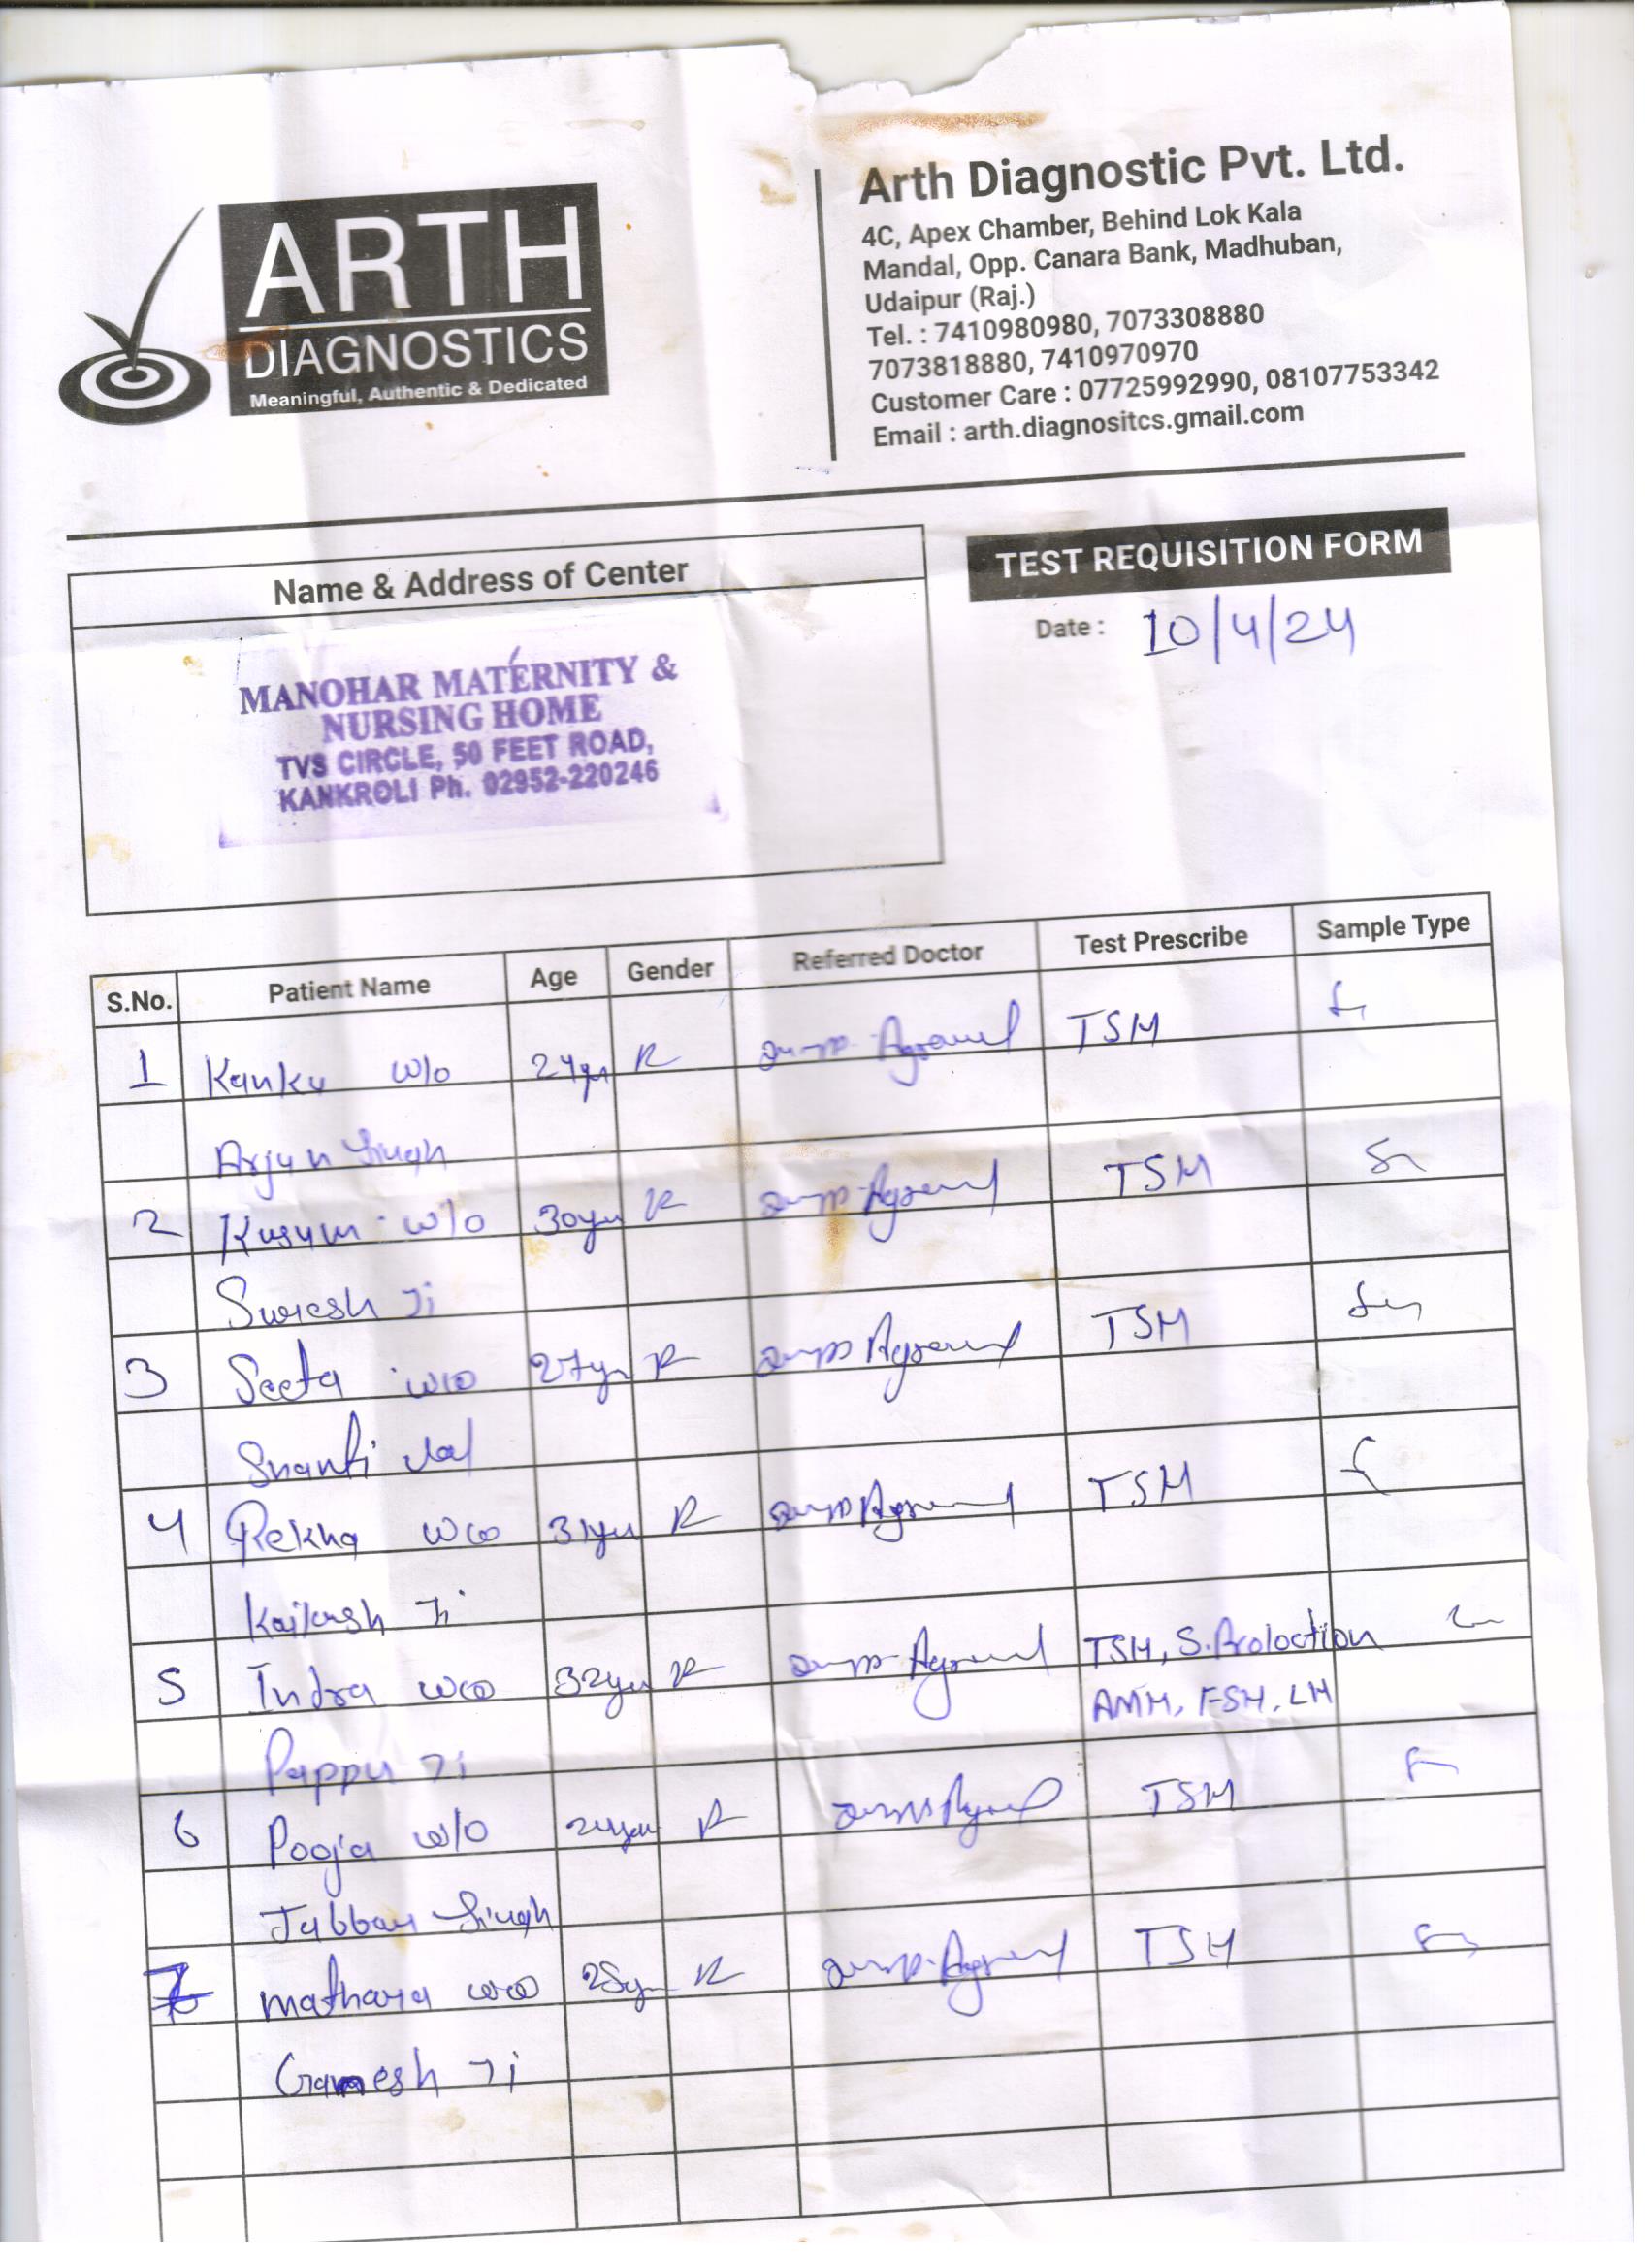 ARTH
DIAGNOSTICS
Meaningful, Authentic & Dedicated
Arth Diagnostic Pvt. Ltd.
4C, Apex Chamber, Behind Lok Kala
Mandal, Opp. Canara Bank, Madhuban,
Udaipur (Raj.)
Tel. : 7410980980, 7073308880
7073818880, 7410970970
Customer Care : 07725992990, 08107753342
Email : arth.diagnositcs.gmail.com
Name & Address of Center
MANOHAR MATERNITY &
NURSING HOME
TVS CIRCLE, 50 FEET ROAD,
KANKROLI Ph. 02952-220246
TEST REQUISITION FORM
Date : 10/4/24
S.No. Patient Name Age Gender Referred Doctor Test Prescribe Sample Type
1 Kanku w/o 24yr Agrawal TSH
Arjun Singh
2 Kusum w/o 30yr Agrawal TSH
Suresh Ji
3 Seeta w/o 27yr Agrawal TSH
Shanti Lal
4 Rekha w/o 31yr Agrawal TSH
Kailash Ji
5 Indra w/o 32yr Agrawal TSH, S.Prolaction
AMH, FSH, LH
Pappu Ji
6 Pooja w/o 24yr Agrawal TSH
Jabbar Singh
7 w/o Agrawal TSH
Ganesh Ji